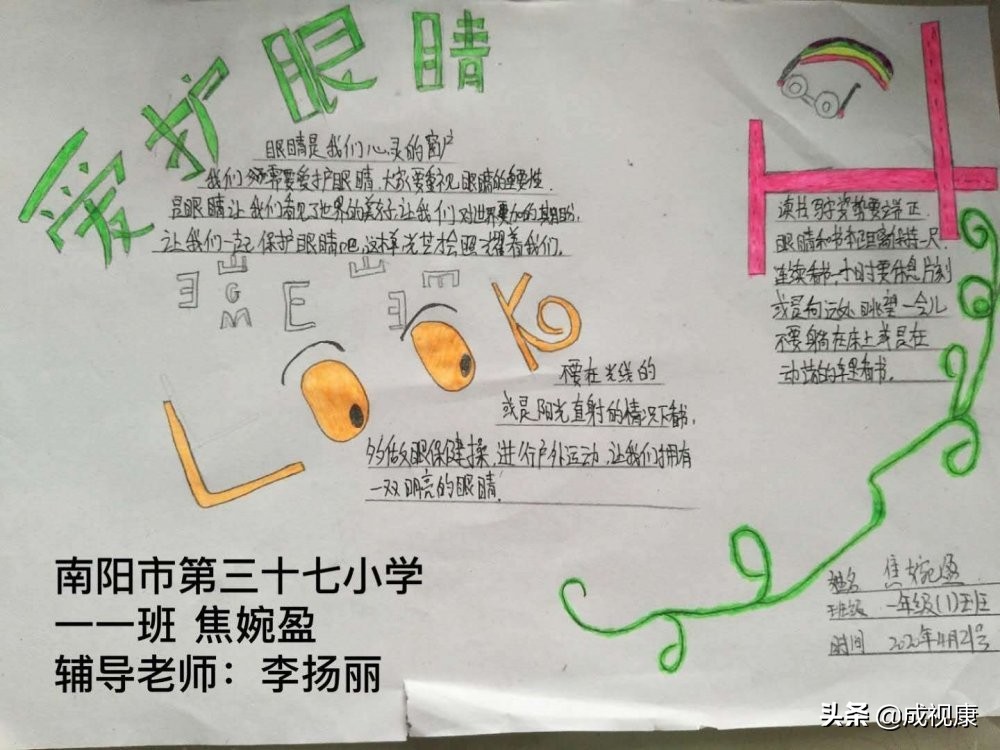 爱护眼睛
眼睛是我们心灵的窗户
我们必需要爱护眼睛,大家要重视眼睛的重要性.
是眼睛让我们看见了世界的美好,让我们对世界更加的期盼,
让我们一起保护眼睛吧,这样光芒才会照耀着我们。
E E E
E G M E E
LOOK
不要在光线的
或是阳光直射的情况下看书,
多做眼保健操,进行户外运动,让我们拥有
一双明亮的眼睛!
读书写字姿势要端正.
眼睛和书本距离保持一尺.
连续看书一小时要休息片刻
或是向远处眺望一会儿
不要躺在床上或是在
动荡的车里看书。
姓名 焦婉盈
班级 一年级(1)班
时间 2020年4月21号
南阳市第三十七小学
一一班 焦婉盈
辅导老师：李扬丽
头条 @成视康